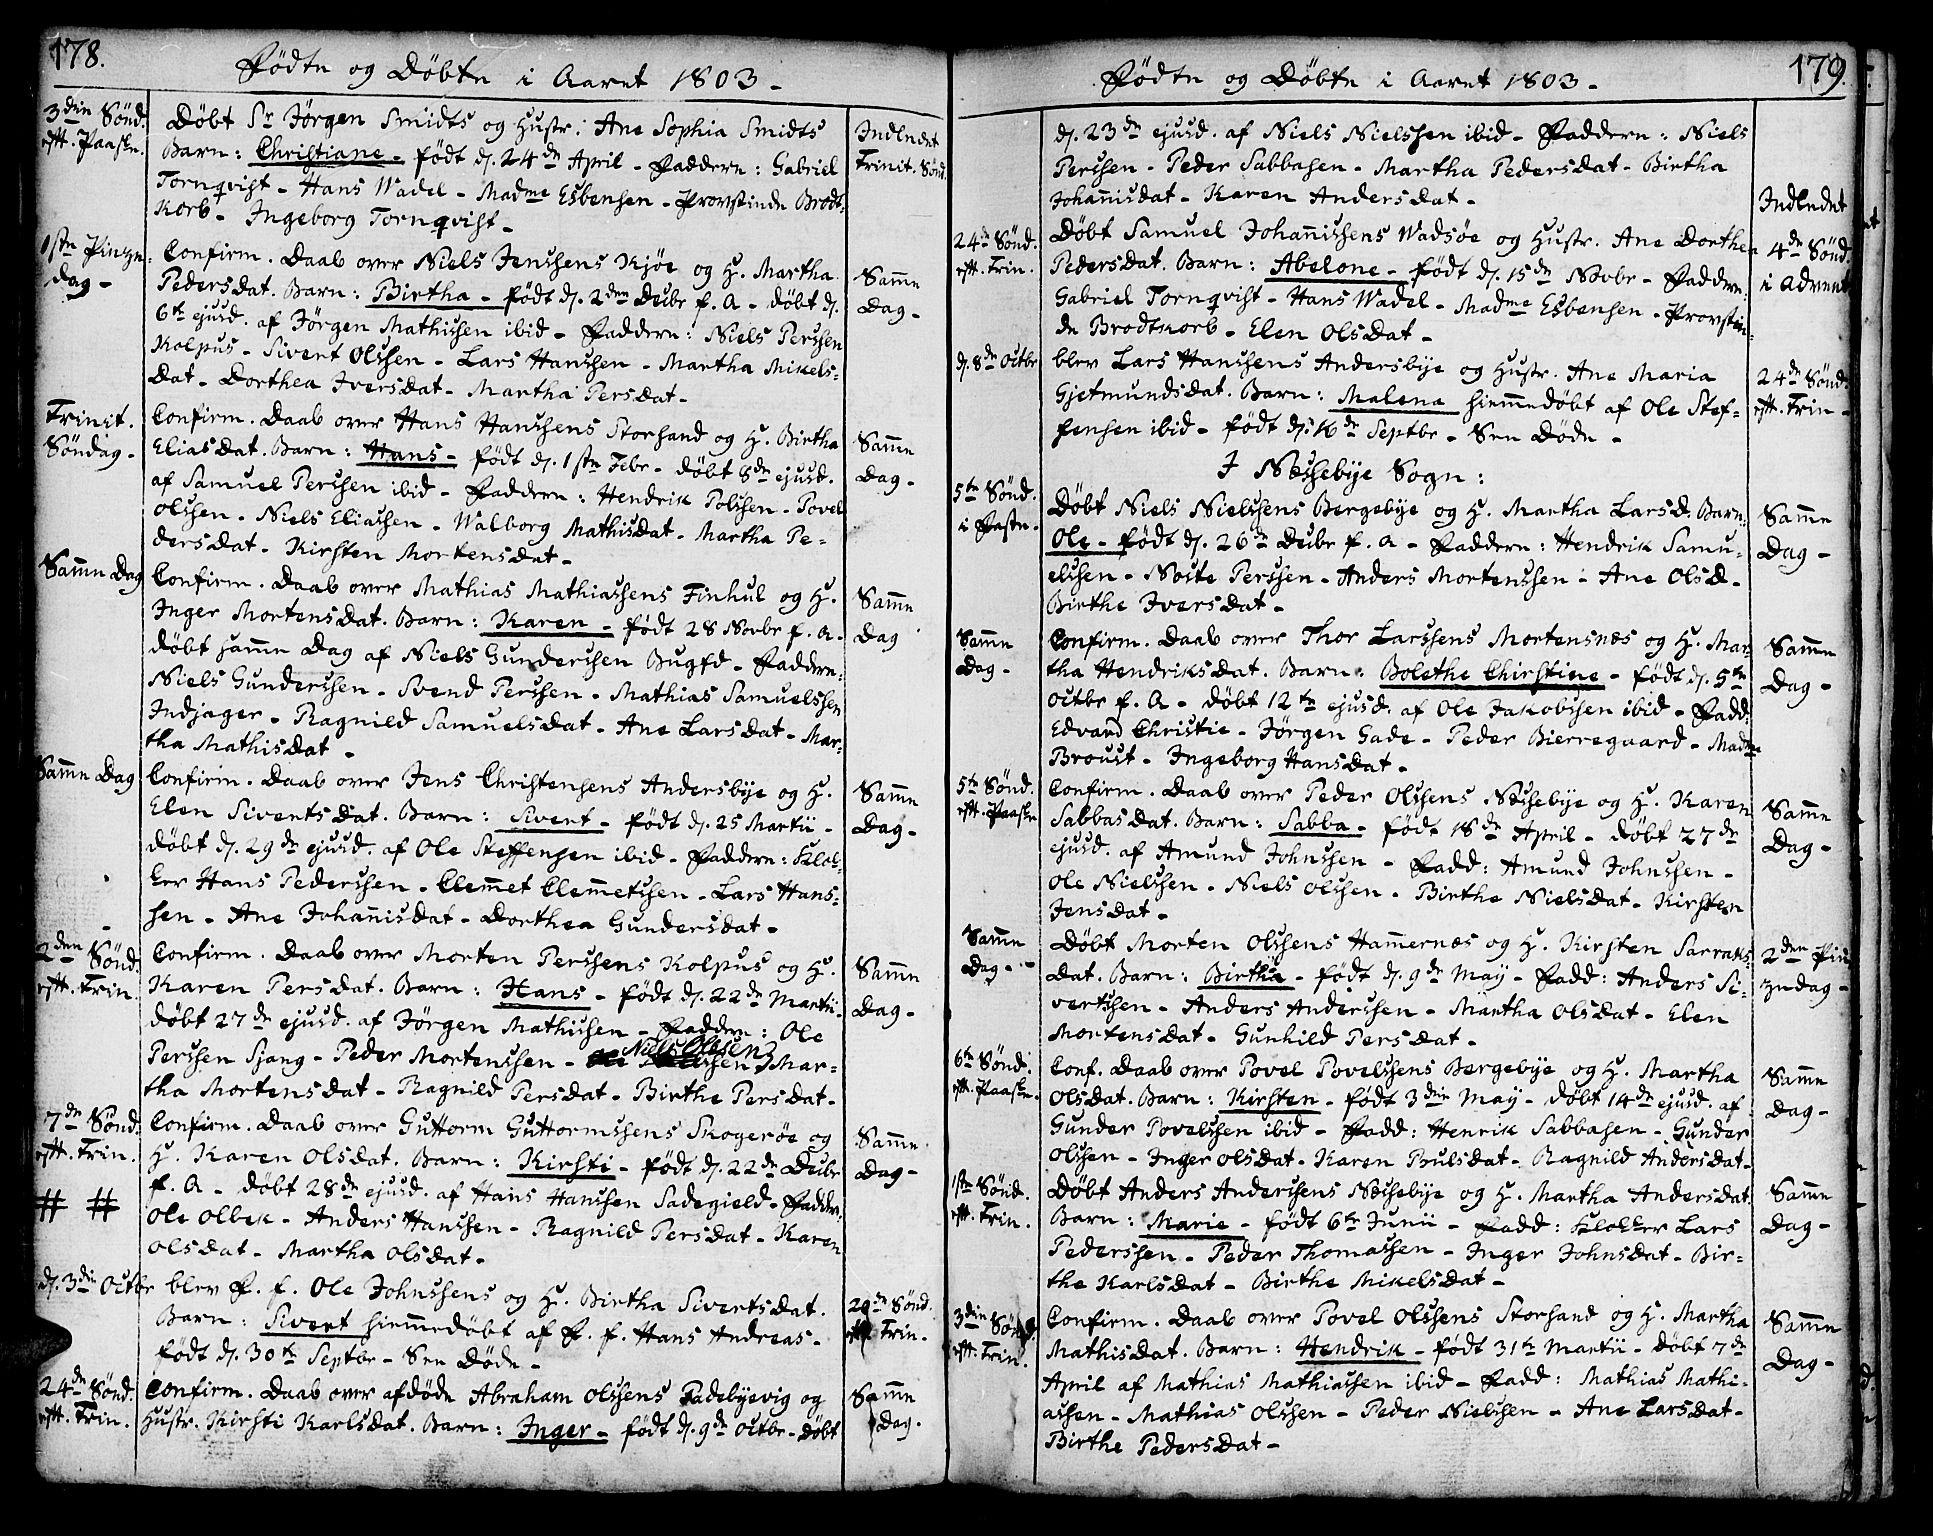 178.
Fødte og Døbte i Aaret 1803 -
3die Sønd. eft. Paaske.
Døbt Sr Jörgen Smidts og Hustr. Ane Sophia Smidts
Barn: Christiane - født d. 24de April - Faddere: Gabriel
Tornqvist - Hans Wadel - Madme Esbensen - Provstinde Brodt-
korb - Ingeborg Tornqvist -
Indledet
Trinit. Sønd.
1ste Pintze-
dag -
Confirm. Daab over Niels Jenssens Kjøe og H. Martha
Pedersdat. Barn: Birtha - født d. 2den Decbr f. A - døbt d.
6te ejusd. af Jörgen Mathissen ibid - Faddere: Niels Perssen
Kolpus - Sivert Olssen - Lars Hanssen - Martha Mikels-
dat - Dorthea Iversdat - Martha Persdat -
Samme
Dag -
Trinit.
Søndag -
Confirm. Daab over Hans Hanssens Storsand og H. Birtha
Eliasdat. Barn: Hans - født d. 1ste Febr - døbt 8de ejusd.
af Samuel Perssen ibid - Faddere: Hendrik Polssen - Povel
Olssen - Niels Eliassen - Walborg Mathisdat - Martha Pe-
dersdat - Kirsten Mortensdat -
Samme
Dag -
Samme Dag
Confirm. Daab over Mathias Mathiassens Finhul og H.
Inger Mortensdat. Barn: Karen - født 28 Novbr f. A -
døbt samme Dag af Niels Gunderssen Bugfd - Faddere:
Niels Gunderssen - Svend Perssen - Mathias Samuelssen
Indjager - Ragnild Samuelsdat - Ane Larsdat - Mar-
tha Mathisdat -
Samme
Dag
Samme Dag
Confirm. Daab over Jens Christensens Andersbye og H.
Elen Sivertsdat. Barn: Sivert - født d. 25 Martii -
døbt d. 29de ejusd. af Ole Steffensen ibid - Faddere: Klok-
ker Hans Pederssen - Clemmet Clemmetssen - Lars Hans-
sen - Ane Johannisdat - Dorthea Gundersdat -
Samme
Dag -
2den Sønd.
eft. Trin.
Confirm. Daab over Morten Perssens Kolpus og H.
Karen Persdat. Barn: Hans - født d. 22de Martii -
døbt 27de ejusd. af Jörgen Mathissen - Faddere: Ole
Perssen Sjang - Peder Mortenssen - Niels Olssen - Mar-
tha Mortensdat - Ragnild Persdat - Birthe Persdat -
Samme
Dag -
7de Sønd.
eft. Trin.
# #
Confirm. Daab over Guttorm Guttormssens Skogerøe og
H. Karen Olsdat. Barn: Kirsti - født d. 22de Decbr
f. A - døbt 28de ejusd. af Hans Hanssen Sadegield - Faddere:
Ole Olbek - Anders Hanssen - Ragnild Persdat - Karen
Olsdat - Martha Olsdat -
Samme
Dag -
d. 3die Octbr
blev F. f. Ole Johnssens og H. Birtha Sivertsdat.
Barn: Sivert hiemmedøbt af F. f. Hans Andreas -
født d. 30te Septbr - See Døde -
Sønd.
eft. Trin.
24de Sønd.
eft. Trin.
Confirm. Daab over afdøde Abraham Olssens Padebyevig og
Hustr. Kirsti Karlsdat. Barn: Inger - født d. 9de Octbr - døbt
Samme
Dag.
179.
Fødte og Døbte i Aaret 1803 -
d. 23de ejusd. af Niels Nielssen ibid - Faddere: Niels
Perssen - Peder Sabbasen - Martha Pedersdat - Birtha
Johannisdat - Karen Andersdat -
24de Sønd.
eft. Trin.
Døbt Samuel Johannissens Wadsøe og Hustr. Ane Dorthea
Pedersdat. Barn: Abelone - født d. 15de Novbr - Faddere:
Gabriel Tornqvist - Hans Wadel - Madme Esbensen - Provstin-
de Brodtkorb - Elen Olsdat -
Indledet
4de Sønd.
i Advent
d. 8de Octbr
blev Lars Hanssens Andersbye og Hustr. Ane Maria
Gjetmundsdat. Barn: Malena hiemmedøbt af Ole Stef-
fensen ibid - født d. 16de Septbr - See Døde -
24de Sønd.
eft. Trin -
I Næssebye Sogn:
5te Sønd.
i Faste -
Døbt Niels Nielssens Bergebye og H. Martha Larsd. Barn:
Ole - født d. 26de Decbr f. A - Faddere: Hendrik Samu-
elssen - Noste Perssen - Anders Mortenssen - Ane Olsd -
Birthe Iversdat -
Samme
Dag -
Samme
Dag -
Confirm. Daab over Thor Larssens Mortensnæs og H. Mar-
tha Hendriksdat. Barn: Bolethe Chirstine - født d. 5te
Octbr f. A - døbt 12te ejusd. af Ole Jakobssen ibid - Fadd:
Edvard Christie - Jörgen Gade - Peder Bierregaard - Madme
Broust - Ingeborg Hansdat -
Samme
Dag -
5te Sønd.
eft. Paaske
Confirm. Daab over Peder Olssens Næssebye og H. Karen
Sabbasdat. Barn: Sabba - født 18de April - døbt 27de
ejusd. af Amund Johnssen - Fadd: Amund Johnssen -
Ole Nielssen - Niels Olssen - Birthe Nielsdat - Kirsten
Jensdat -
Samme
Dag -
Samme
Dag -
Døbt Morten Olssens Hammernæs og H. Kirsten Sarraks-
dat. Barn: Birtha - født d. 9de May - Fadd: Anders Si-
vertssen - Anders Anderssen - Martha Olsdat - Elen
Mortensdat - Gunhild Persdat -
2den Pin-
zedag -
6te Sønd.
eft. Paaske.
Conf. Daab over Povel Povelssens Bergebye og H. Martha
Olsdat. Barn: Kirsten - født 3die May - døbt 14de ejusd. af
Gunder Povelssen ibid - Fadd: Henrik Sabbasen - Gunder
Olssen - Inger Olsdat - Karen Pulsdat - Ragnild Andersdat -
Samme
Dag -
1ste Sønd.
eft. Trin.
Døbt Anders Anderssens Næssebye og H. Martha Andersdat.
Barn: Marie - født 6te Junii - Fadd: Klokker Lars
Pederssen - Peder Thomassen - Inger Johnsdat - Bir-
the Karlsdat - Birthe Mikelsdat -
Samme
Dag -
3die Sønd.
eft. Trin.
Confirm. Daab over Povel Olssens Storsand og H. Martha
Mathisdat. Barn: Hendrik - født 31te Martii - døbt 7de
April af Mathias Mathiassen ibid - Fadd: Mathias Mathi-
assen - Mathias Olssen - Peder Nielssen - Ane Larsdat -
Birthe Pedersdat -
Samme
Dag -